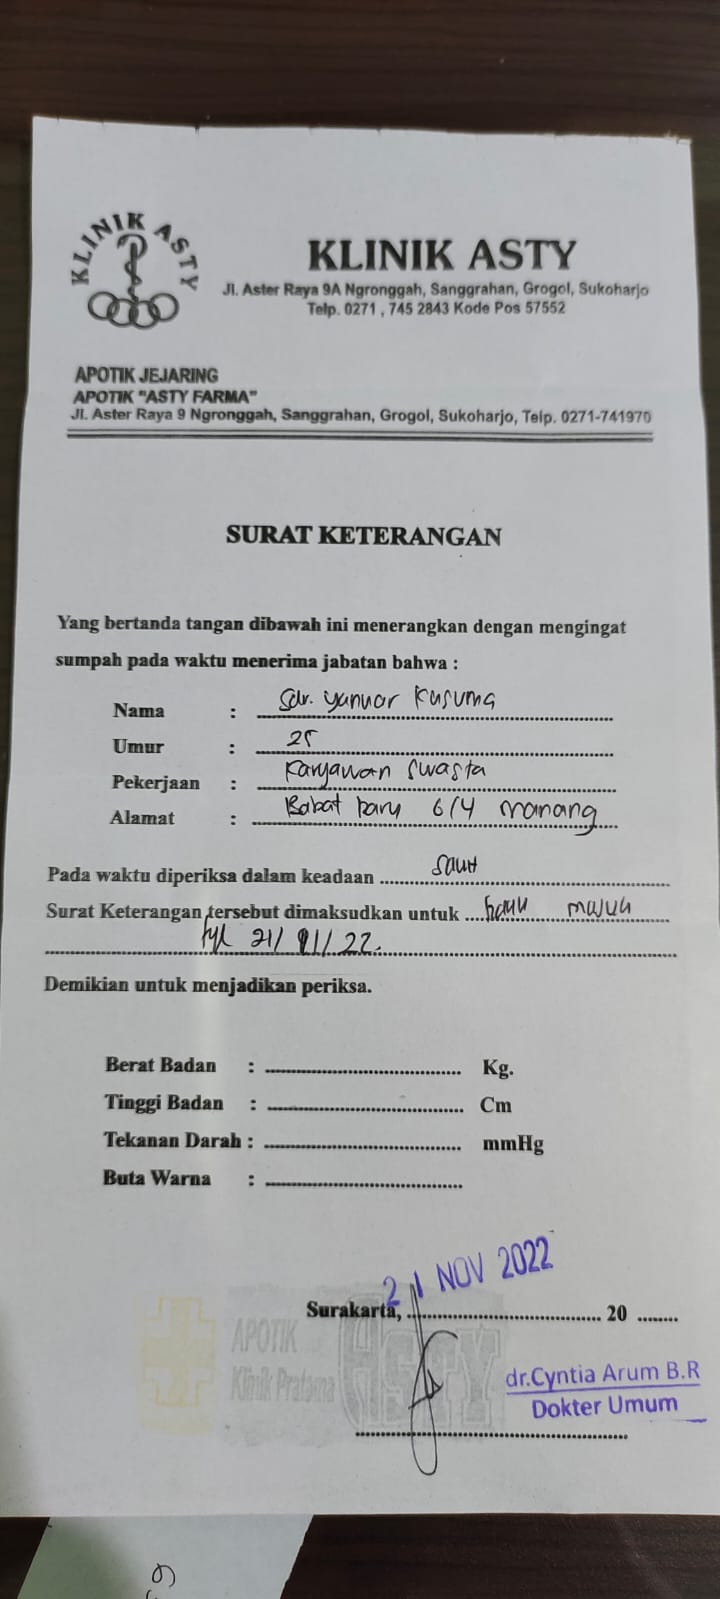 KLINIK ASTY
KLINIK ASTY
Jl. Aster Raya 9A Ngronggah, Sanggrahan, Grogol, Sukoharjo
Telp. 0271 , 745 2843 Kode Pos 57552
APOTIK JEJARING
APOTIK "ASTY FARMA"
Jl. Aster Raya 9 Ngronggah, Sanggrahan, Grogol, Sukoharjo, Telp. 0271-741970
SURAT KETERANGAN
Yang bertanda tangan dibawah ini menerangkan dengan mengingat
sumpah pada waktu menerima jabatan bahwa :
Nama : Sdr. Yanuar Kusuma
Umur : 25
Pekerjaan : Karyawan Swasta
Alamat : Babat baru 6/4 Manang
Pada waktu diperiksa dalam keadaan ..... Sakit
Surat Keterangan tersebut dimaksudkan untuk .....
tgl 21/11/22.
Demikian untuk menjadikan periksa.
Berat Badan : ..... Kg.
Tinggi Badan : ..... Cm
Tekanan Darah : ..... mmHg
Buta Warna : .....
21 NOV 2022
Surakarta, ..... 20 .....
APOTIK ASTY
Klinik Pratama
dr.Cyntia Arum B.R
Dokter Umum